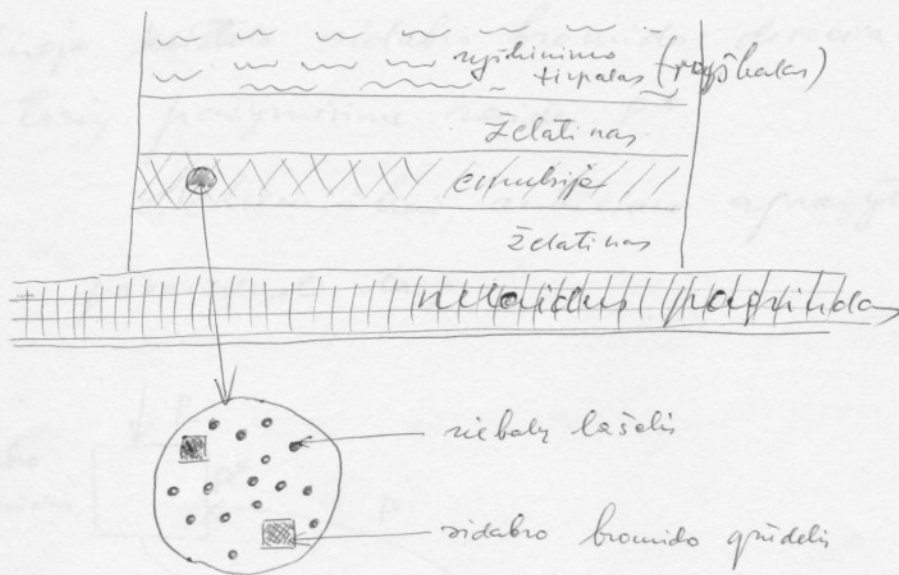 ryškinimo
tirpalas (ryškalas)
želatinas
emulsija
želatinas
nelaidus pagrindas
riebalų lašelis
sidabro bromido grūdelis